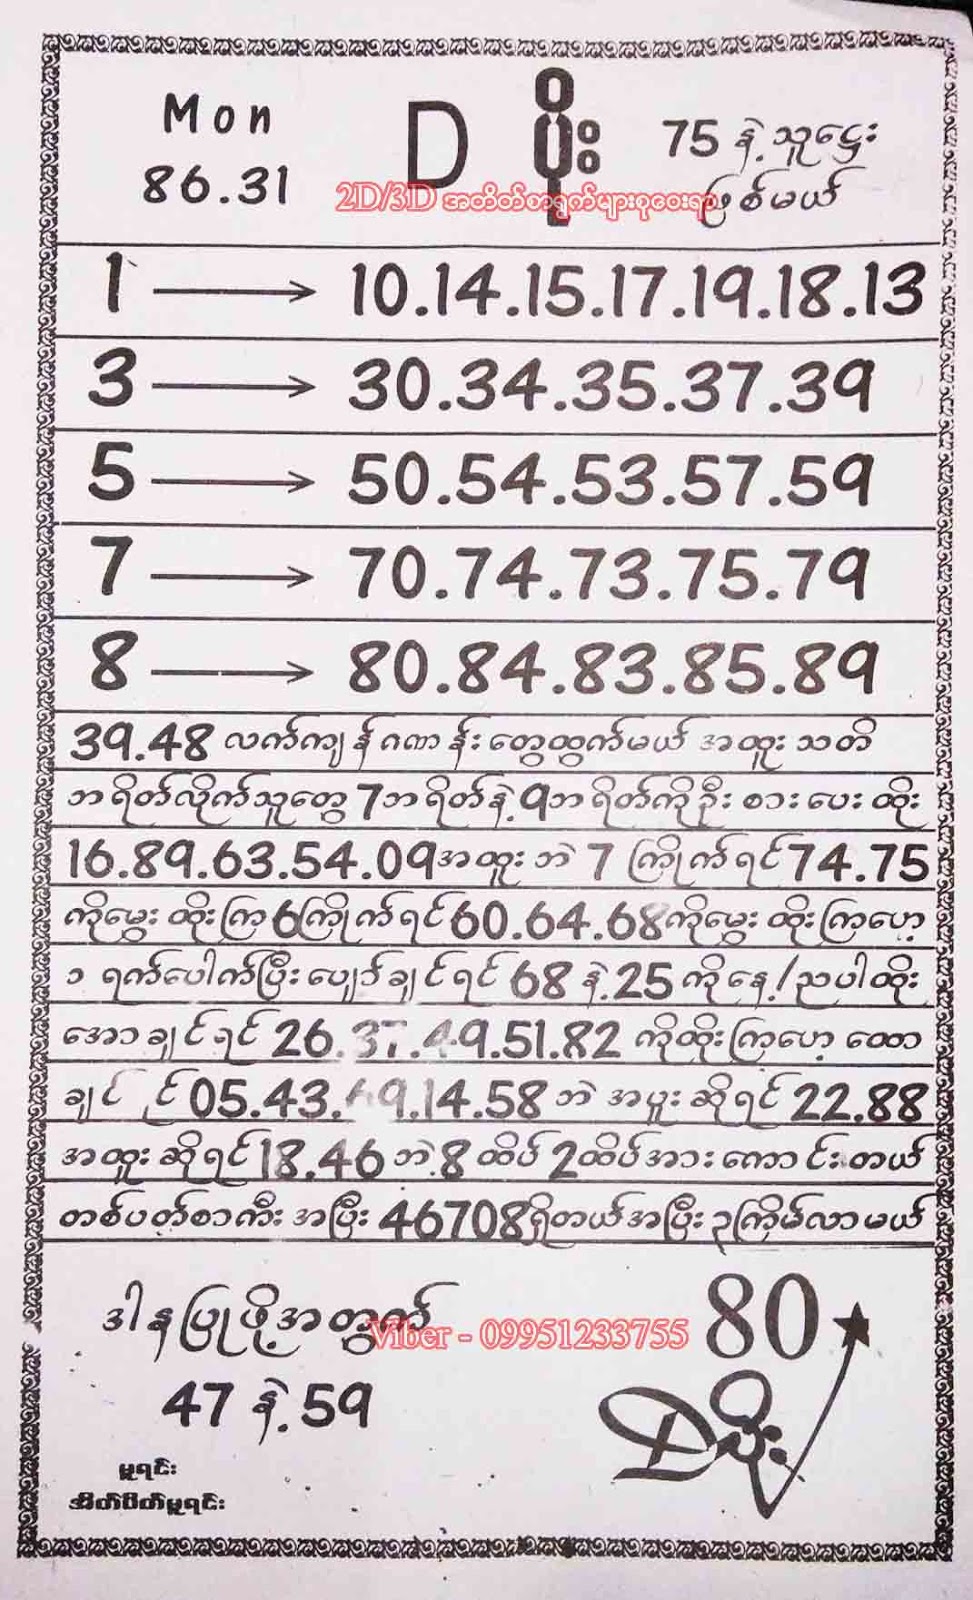 Mon
86.31
D ပိုး
75 နဲ့ သူဌေး
ဖြစ်မယ်
2D/3D အတိတ်စာရွက်များစုဝေးရာ
1 → 10.14.15.17.19.18.13
3 → 30.34.35.37.39
5 → 50.54.53.57.59
7 → 70.74.73.75.79
8 → 80.84.83.85.89
39.48 လက်ကျန်ဂဏန်းတွေထွက်မယ် အထူးသတိ
ဘရိတ်လိုက်သူတွေ 7ဘရိတ်နဲ့ 9ဘရိတ်ကိုဦးစားပေးထိုး
16.89.63.54.09အထူးဘဲ 7 ကြိုက်ရင်74.75
ကိုမွှေးထိုးကြ6ကြိုက်ရင်60.64.68ကိုမွှေးထိုးကြဟေ့
၁ ရက်ပေါက်ပြီးပျော်ချင်ရင် 68 နဲ့ 25 ကိုနေ့/ညပါထိုး
အောချင်ရင် 26.37.49.51.82 ကိုထိုးကြဟေ့ ထော
ချင် 05.43.69.14.58 ဘဲ အပူးဆိုရင် 22.88
အထူးဆိုရင်18.46ဘဲ.8ထိပ် 2ထိပ်အားကောင်းတယ်
တစ်ပတ်စာကီးအပြီး 46708ရှိတယ်အပြီး ၃ကြိမ်လာမယ်
ဒါနပြုဖို့အတွက်
47 နဲ့ 59
Viber - 09951233755
80
Dပိုး
မူရင်း
အိတ်ပိတ်မူရင်း